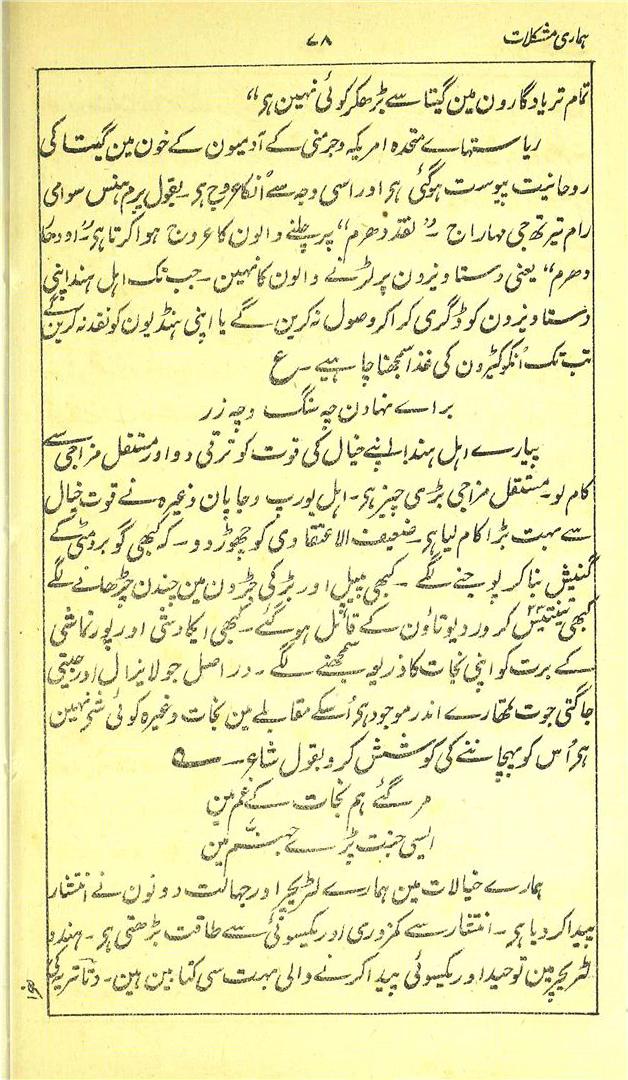 ہماری مشکلات ۷۸
تمام تر یادگارون مین گیتا سے بڑھکر کوئی نہین ہی“
ریاستہاے متحدہ امریکہ و جرمنی کے آدمیون کے خون مین گیتا کی
روحانیت پیوست ہوگئی ہی اور اسی وجہ سے اُنکا عروج ہی۔ بقول پرم ہنس سوامی
رام تیرتھ جی مہاراج ۔ ”نقد دھرم“ پر چلنے والون کا عروج ہوا کرتا ہی ”اودھار
دھرم“ یعنی دستاویزون پر لڑنے والون کا نہین ۔ جب تک اہل ہند اپنی
دستاویزون کو ڈگری کرا کر وصول نہ کرین گے یا اپنی ہنڈیون کو نقد نہ کرین گے
تب تک اُنکو کیڑون کی غذا سمجھنا چاہیے ۔ ع
براے نہادن چہ سنگ و چہ زر
پیارے اہل ہند! اپنے خیال کی قوت کو ترقی دو اور مستقل مزاجی سے
کام لو۔ مستقل مزاجی بڑی چیز ہی۔ اہل یورپ و جاپان وغیرہ نے قوت خیال
سے بہت بڑا کام لیا ہی۔ ضعیف الاعتقادی کو چھوڑ دو ۔ کہ کبھی گوبر مٹی کے
گنیش بنا کر پوجنے لگے ۔ کبھی پیپل اور بڑ کی جڑون مین چندن چڑھانے لگے
کبھی تینتیس ۳۳ کرور دیوتاؤن کے قائل ہو گئے ۔ کبھی ایکادشی اور پورنماشی
کے برت کو اپنی نجات کا ذریعہ سمجھنے لگے ۔ در اصل جو لا یزال اور جیتی
جاگتی جوت تمھارے اندر موجود ہی اُسکے مقابلے مین نجات وغیرہ کوئی شے نہین
ہی اُس کو پہچاننے کی کوشش کرو بقول شاعر ۔ ؎
مر گئے ہم نجات کے غم مین
ایسی جنت پڑے جہنّم مین
ہمارے خیالات مین ہمارے لٹریچر اور جہالت دونون نے انتشار
پیدا کر دیا ہی ۔ انتشار سے کمزوری اور یکسوئی سے طاقت بڑھتی ہی ۔ ہندو
لٹریچر مین توحید اور یکسوئی پیدا کرنے والی بہت سی کتابین ہین ۔ دتاتریہ کی